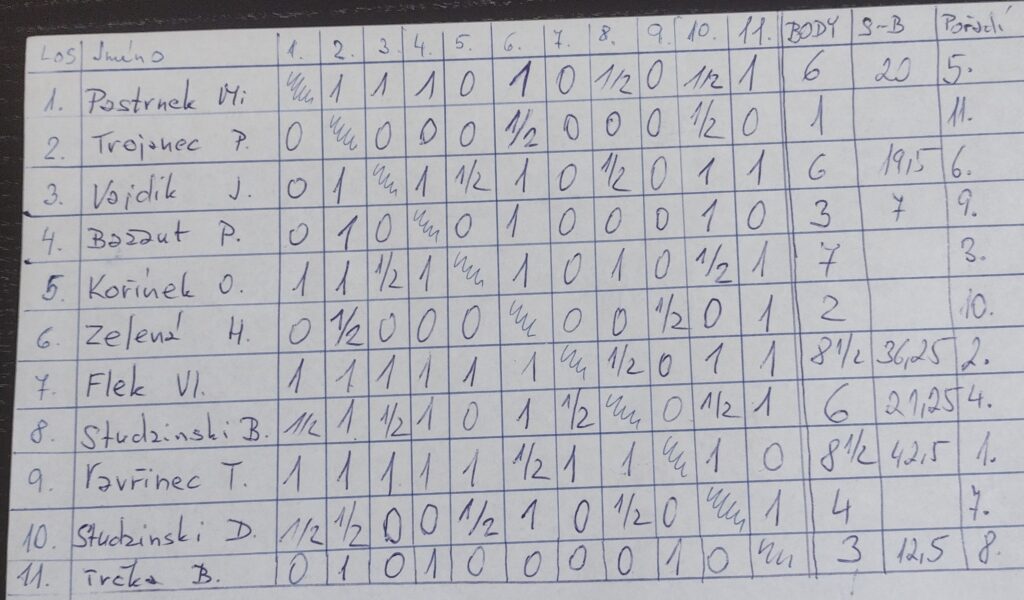 LOS Jméno 1. 2. 3. 4. 5. 6. 7. 8. 9. 10. 11. BODY S-B Pořadí
1. Postrnek Mi 1 1 1 0 1 0 1/2 0 1/2 1 6 20 5.
2. Trojanec P. 0 0 0 0 1/2 0 0 0 1/2 0 1 11.
3. Vajdík J. 0 1 1 1/2 1 0 1/2 0 1 1 6 19,5 6.
4. Bazaut P. 0 1 0 0 1 0 0 0 1 0 3 7 9.
5. Kořínek O. 1 1 1/2 1 1 0 1 0 1/2 1 7 3.
6. Zelená H. 0 1/2 0 0 0 0 0 1/2 0 1 2 10.
7. Flek Vl. 1 1 1 1 1 1 1/2 0 1 1 8 1/2 36,25 2.
8. Studzinski B. 1/2 1 1/2 1 0 1 1/2 0 1/2 1 6 21,25 4.
9. Vavřinec T. 1 1 1 1 1 1/2 1 1 1 0 8 1/2 42,5 1.
10. Studzinski D. 1/2 1/2 0 0 1/2 1 0 1/2 0 1 4 7.
11. Trčka B. 0 1 0 1 0 0 0 0 1 0 3 12,5 8.